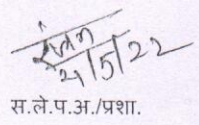 2/5/22
स.ले.प.अ./प्रशा.